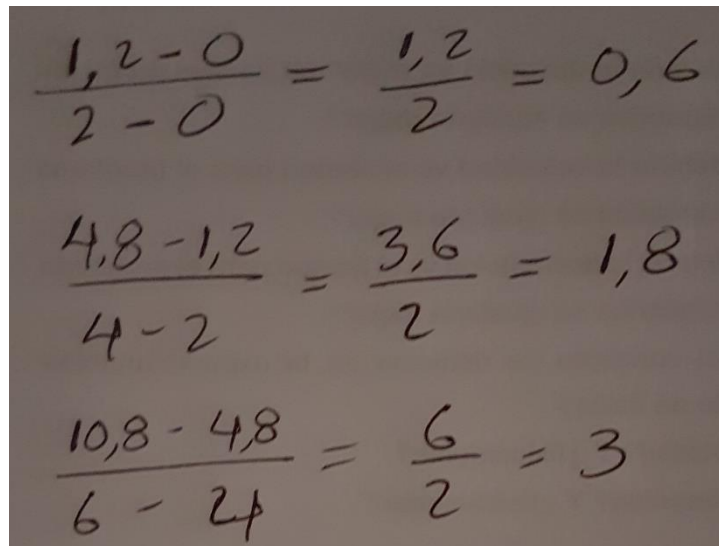 (1,2 - 0)/(2 - 0) = 1,2/2 = 0,6
(4,8 - 1,2)/(4 - 2) = 3,6/2 = 1,8
(10,8 - 4,8)/(6 - 4) = 6/2 = 3